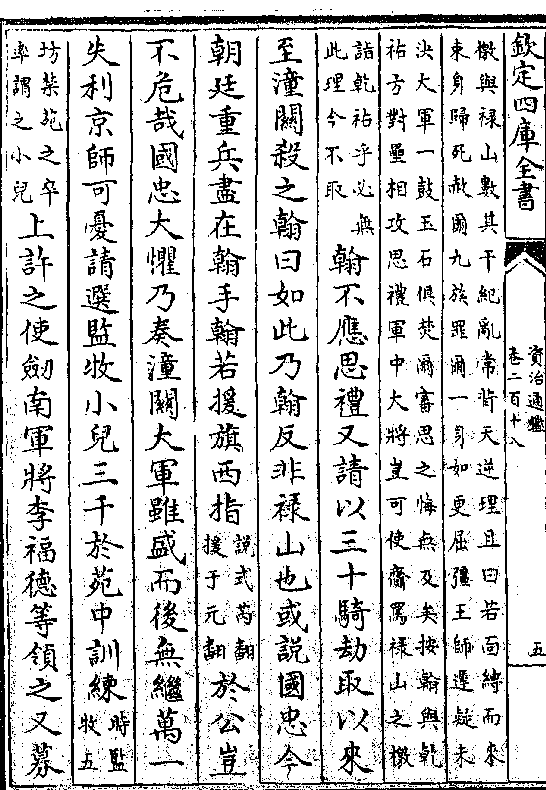 欽定四庫全書
資治通鑑
卷二百十八
五
檄與禄山數其干紀亂常背天逆理且曰若面縳而來
束身歸死赦爾九族罪爾一身如更屈彊王師遲疑未
決大軍一鼓玉石俱焚爾審思之悔無及矣按翰與乾
祐方對壘相攻思禮軍中大將豈可使齎罵禄山之檄
詣乾祐乎必無
此理今不取
翰不應思禮又請以三十騎劫取以來
至潼關殺之翰曰如此乃翰反非禄山也或說國忠今
朝廷重兵盡在翰手翰若援旗西指
說式芮翻
援于元翻
於公豈
不危哉國忠大懼乃奏潼關大軍雖盛而後無繼萬一
失利京師可憂請選監牧小兒三千於苑中訓練
時監
牧五
坊禁苑之卒
率謂之小兒
上許之使劒南軍將李福德等領之又募